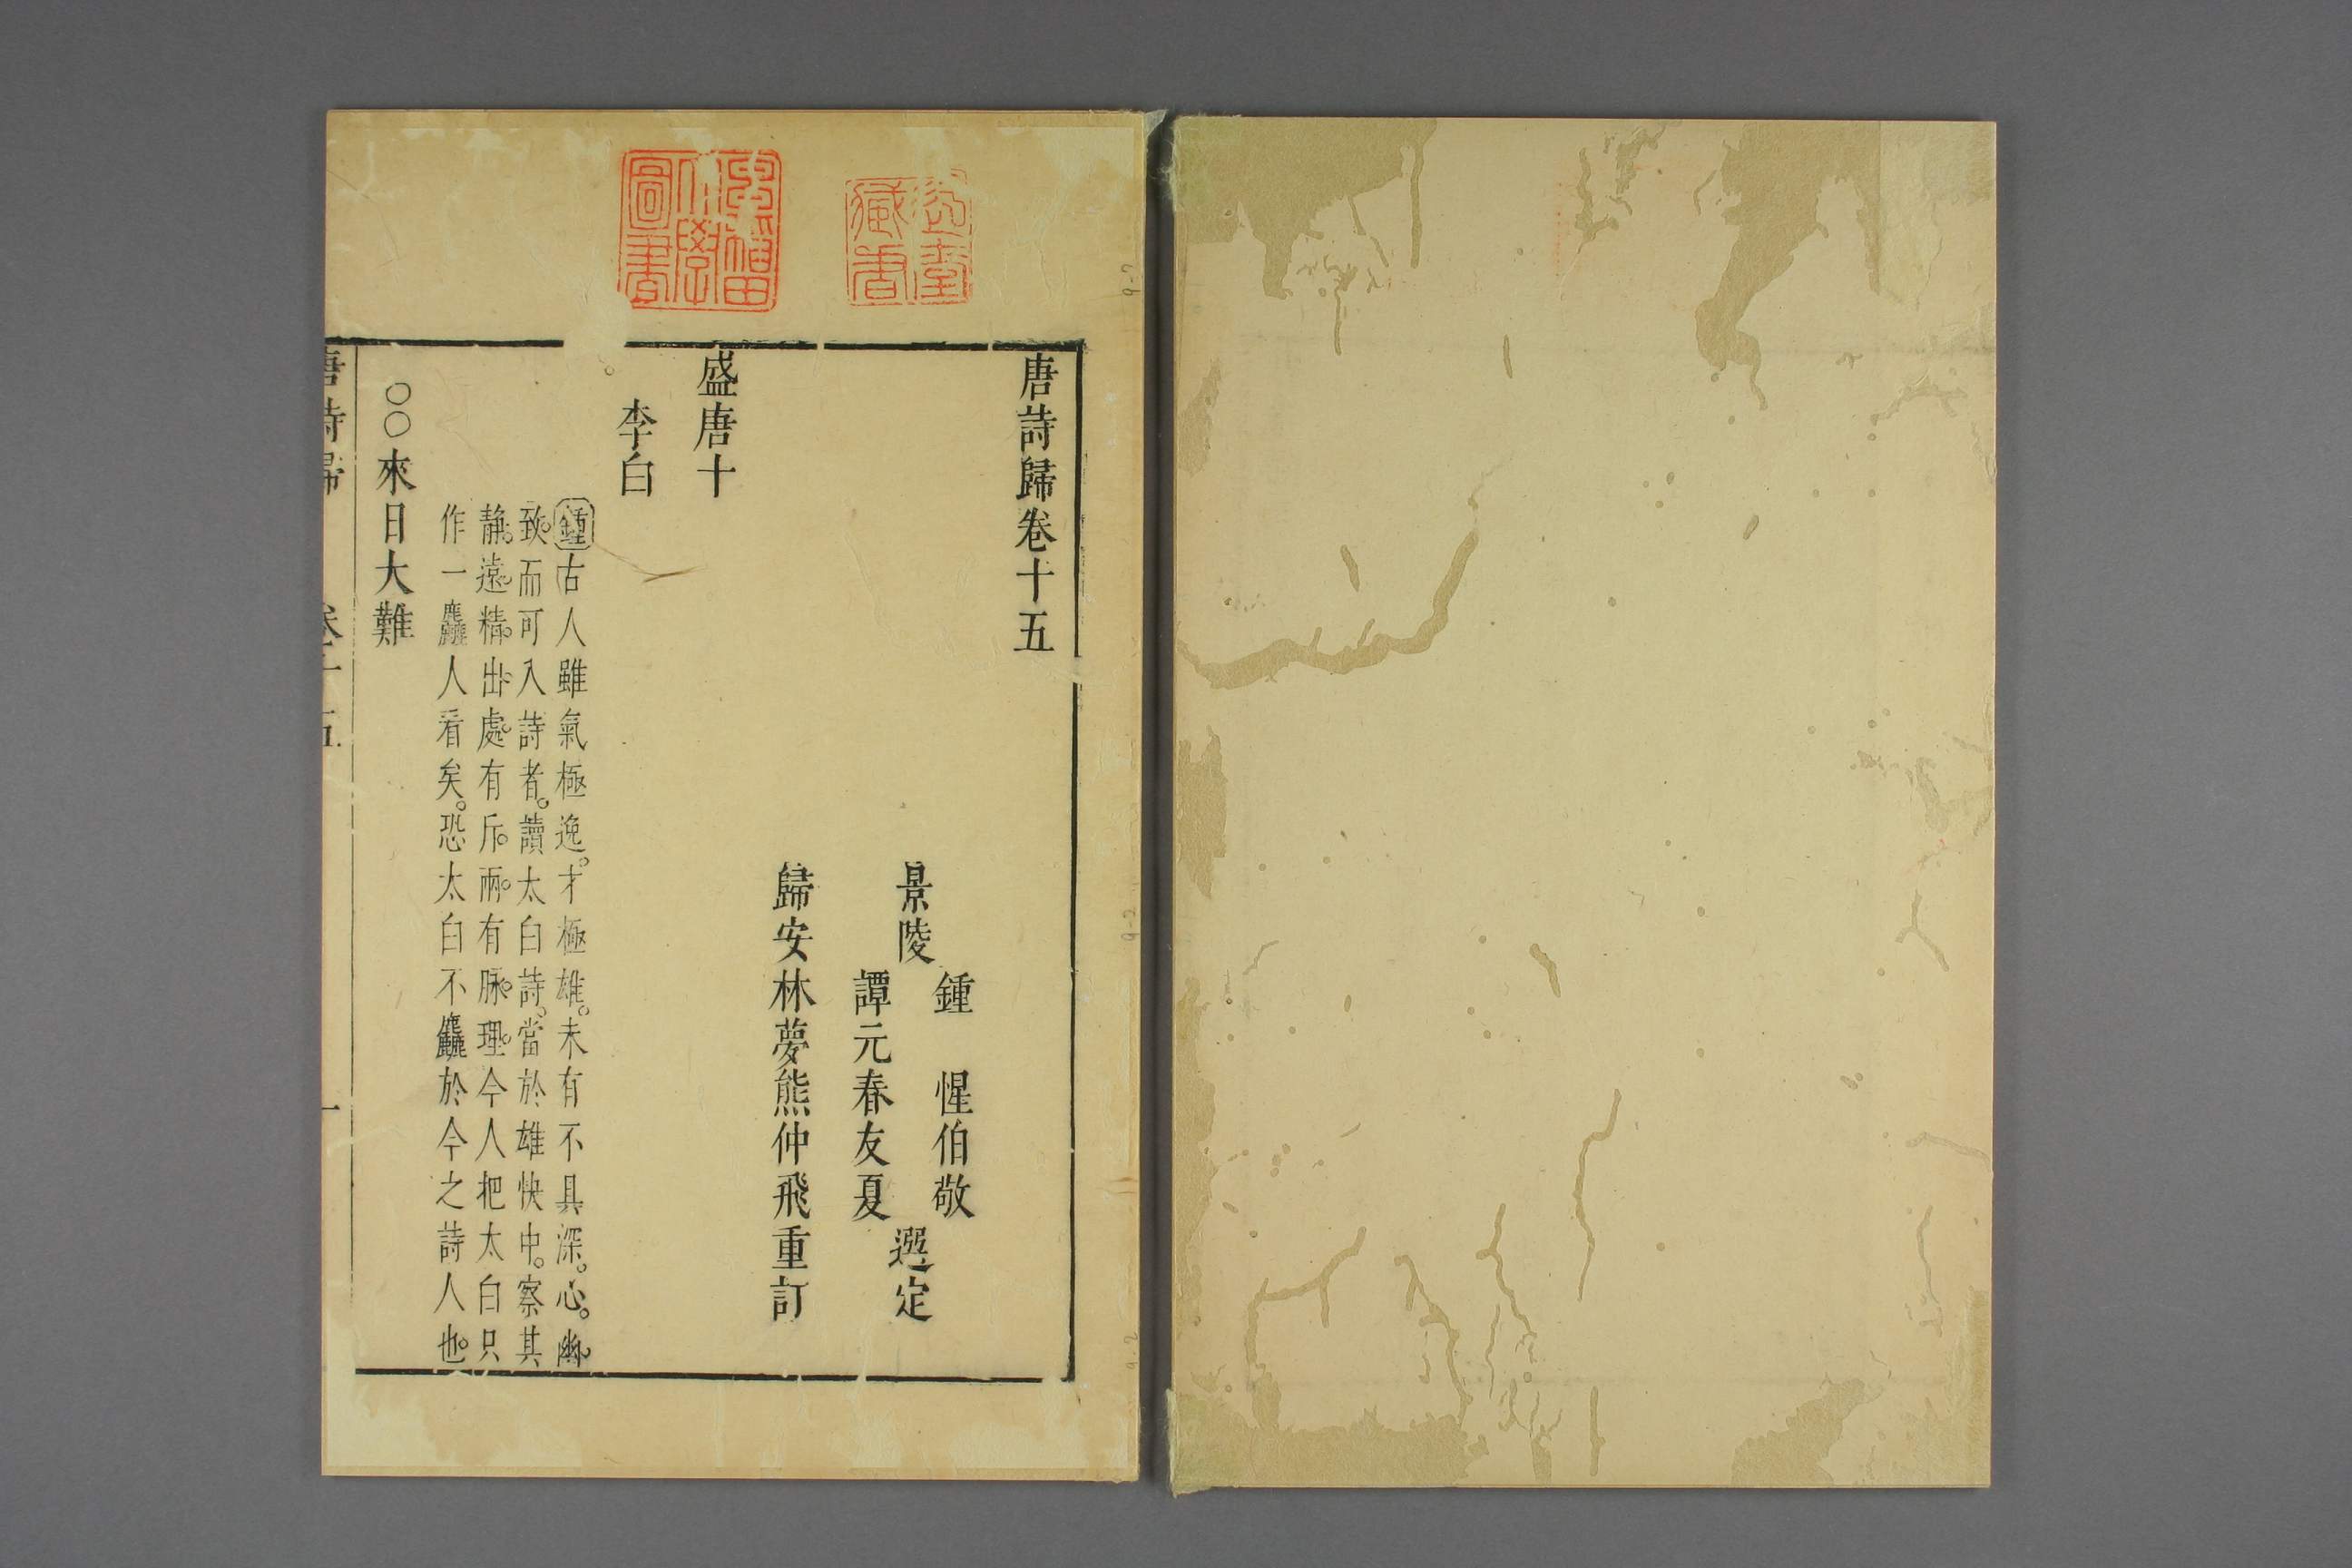 唐詩歸卷十五
鍾惺伯敬
景陵
選定
譚元春友夏
歸安林夢熊仲飛重訂
盛唐十
李白
鍾古人雖氣極逸。才極雄。未有不具深。心。幽
致。而可入詩者。讀太白詩。當於雄快中。察其
靜。遠。精。出。處。有斤。兩。有脉。理。今人把太白只
作一麤人看矣。恐太白不麤於今之詩人也。
〇〇來日大難
唐詩歸 卷十五 一
圖書
藏書